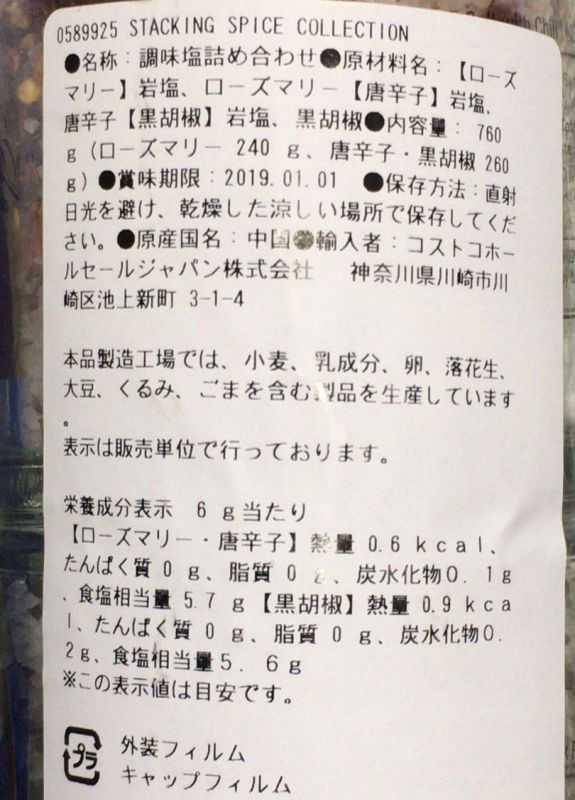 0589925 STACKING SPICE COLLECTION
●名称:調味塩詰め合わせ●原材料名:【ローズ
マリー】岩塩、ローズマリー【唐辛子】岩塩、
唐辛子【黒胡椒】岩塩、黒胡椒●内容量:760
g(ローズマリー 240 g、唐辛子・黒胡椒 260
g)●賞味期限:2019.01.01 ●保存方法:直射
日光を避け、乾燥した涼しい場所で保存してくだ
さい。●原産国名:中国●輸入者:コストコホー
ルセールジャパン株式会社 神奈川県川崎市川
崎区池上新町 3-1-4
本品製造工場では、小麦、乳成分、卵、落花生、
大豆、くるみ、ごまを含む製品を生産しています
。
表示は販売単位で行っております。
栄養成分表示 6g当たり
【ローズマリー・唐辛子】熱量 0.6kcal、
たんぱく質 0 g、脂質 0 g、炭水化物0.1g
、食塩相当量 5.7 g【黒胡椒】熱量 0.9kca
l、たんぱく質 0 g、脂質 0 g、炭水化物0.
2g、食塩相当量5.6g
※この表示値は目安です。
プラ 外装フィルム
キャップフィルム